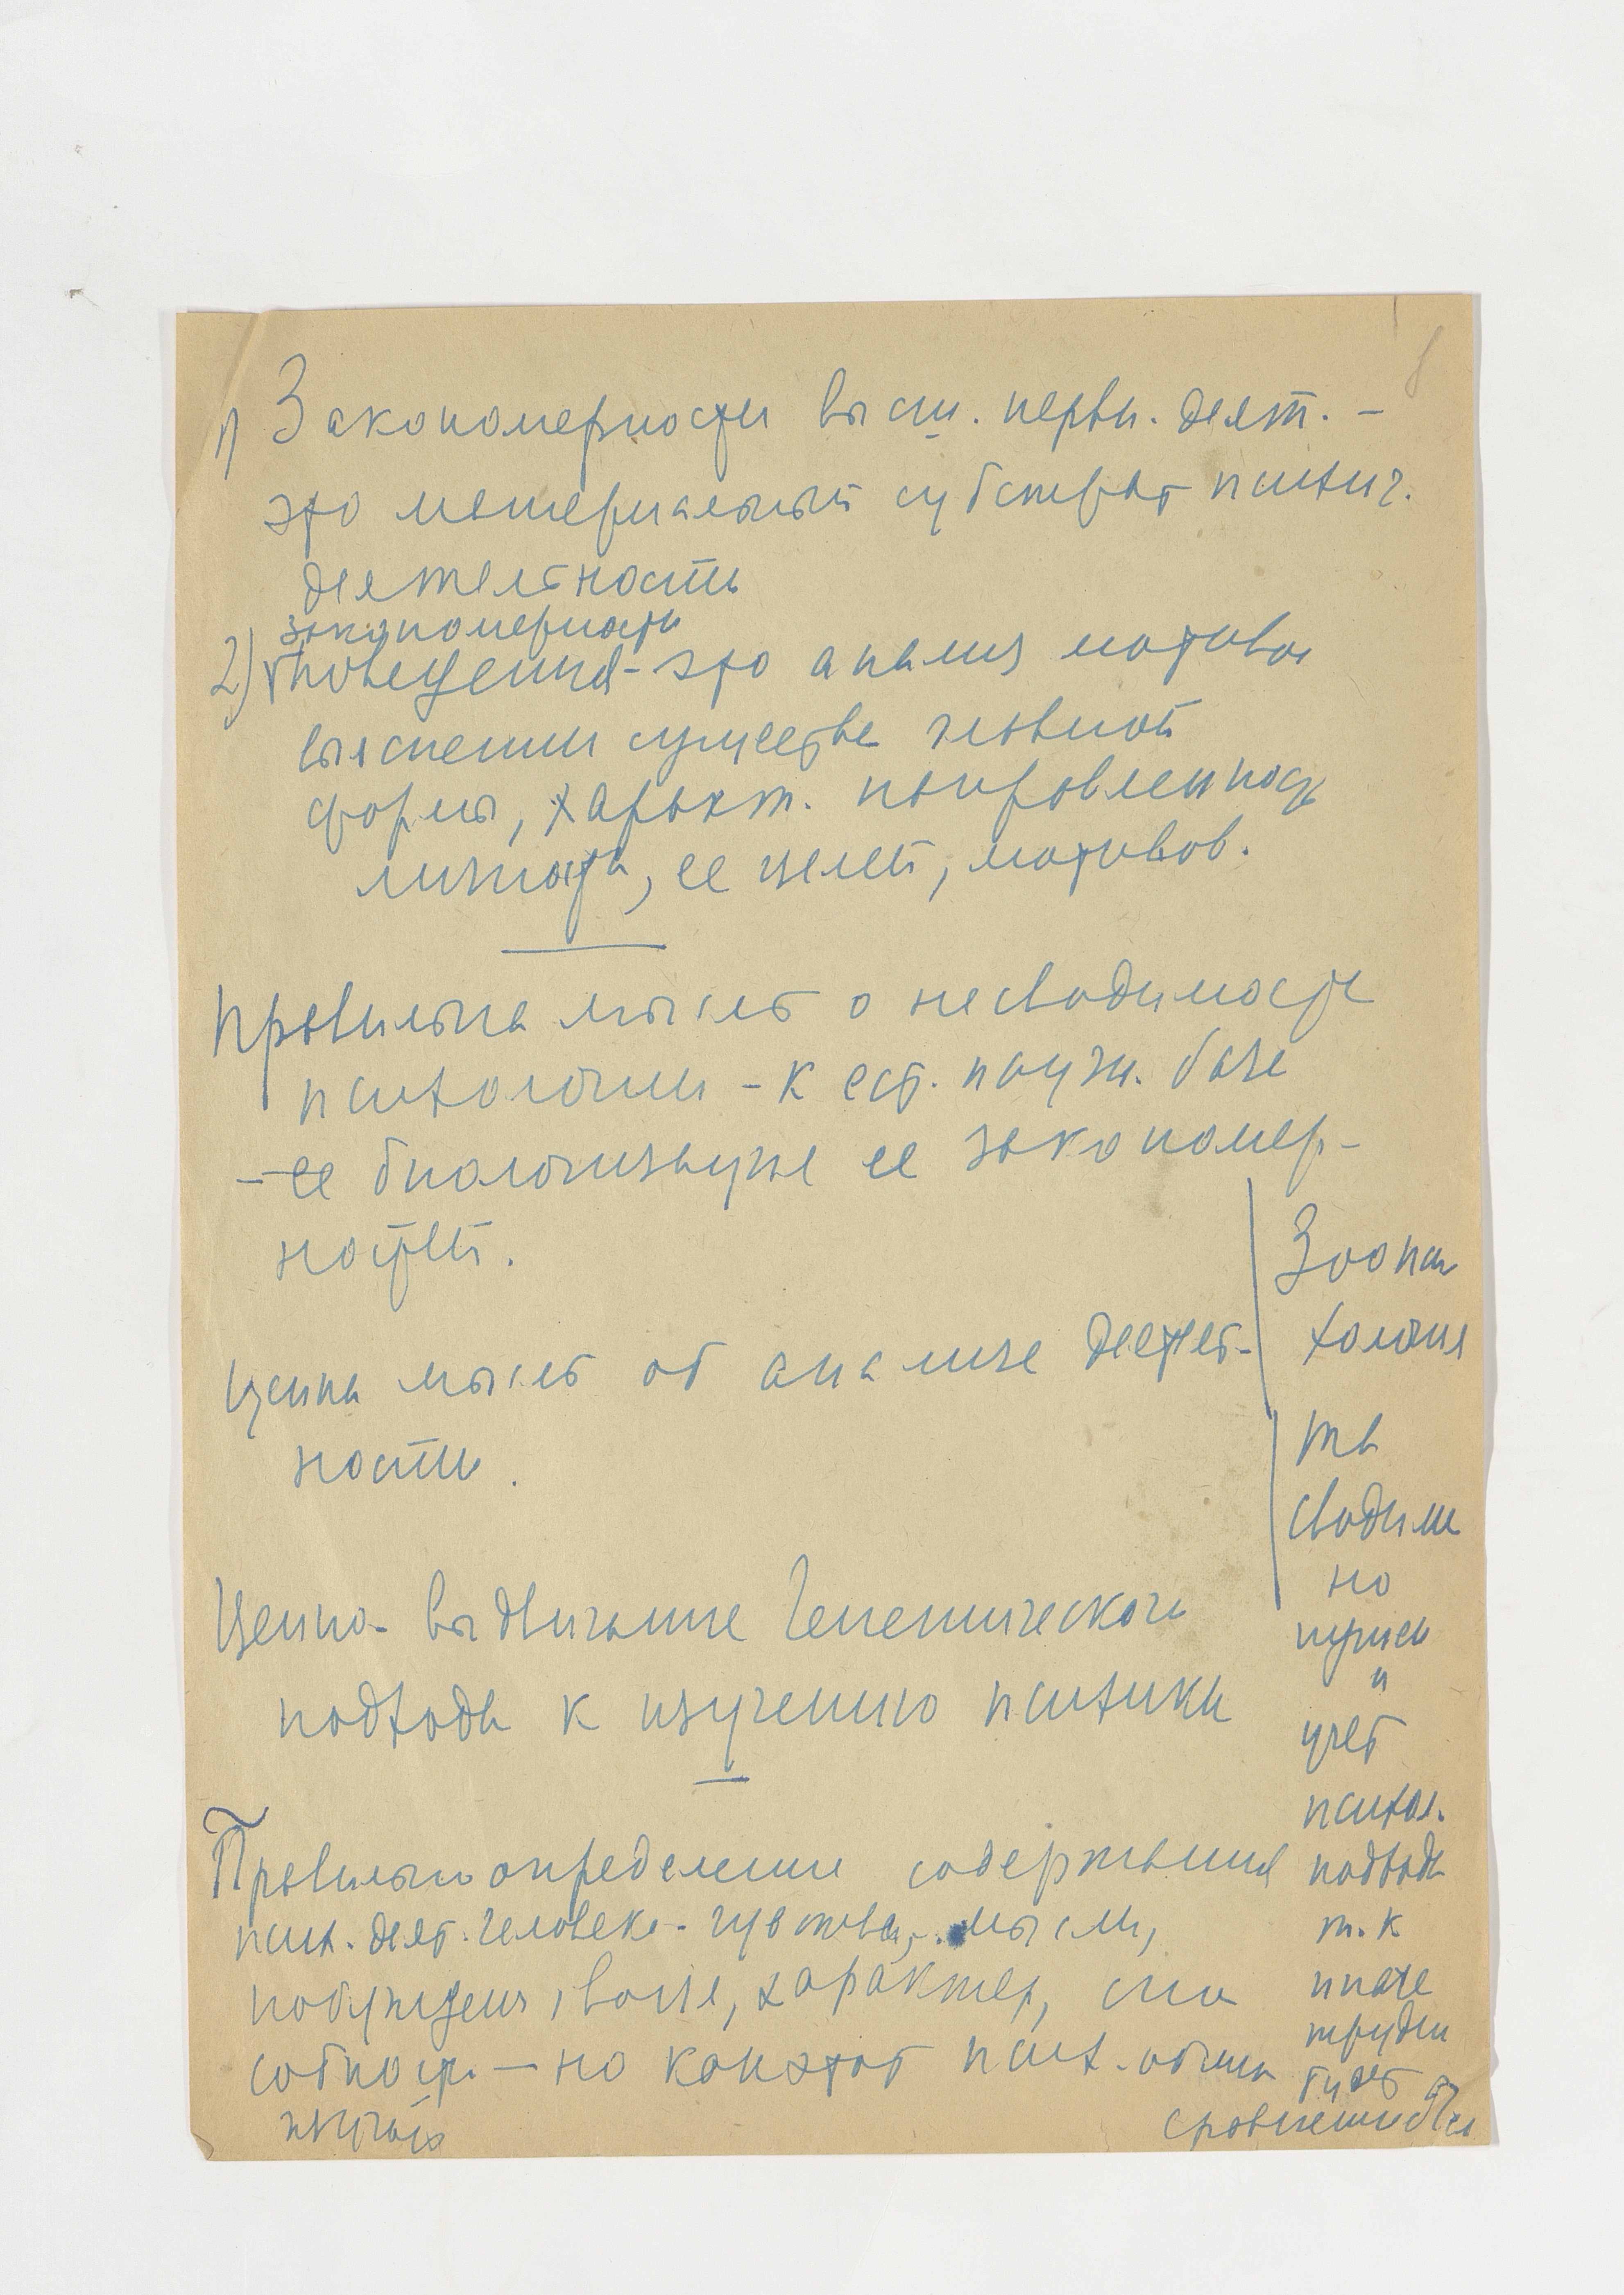 1) Закономерности высш. нервн. деят. –
это материальный субстрат психич.
деятельности
закономерности
2) поведения – это анализ мотивов
выяснении существа главной
формы, характ. направленность
личности, ее целей, мотивов.
Правильна мысль о несводимости
психологии – к ест. научн. базе
– ее биологизация ее закономер-
ностей.
Ценна мысль об анализе деятель-
ности.
Ценно – выдвигание генетического
подхода к изучению психики
Правильно определении содержания
псих. деят. человека – чувства, мысли,
побужден, воля, характер, спо
собност. – но как этот псих. облик
Зоопси
хология
сводим
но
нужен
и
учет
психол.
подхода
т. к
иначе
трудн
будет
сравнении